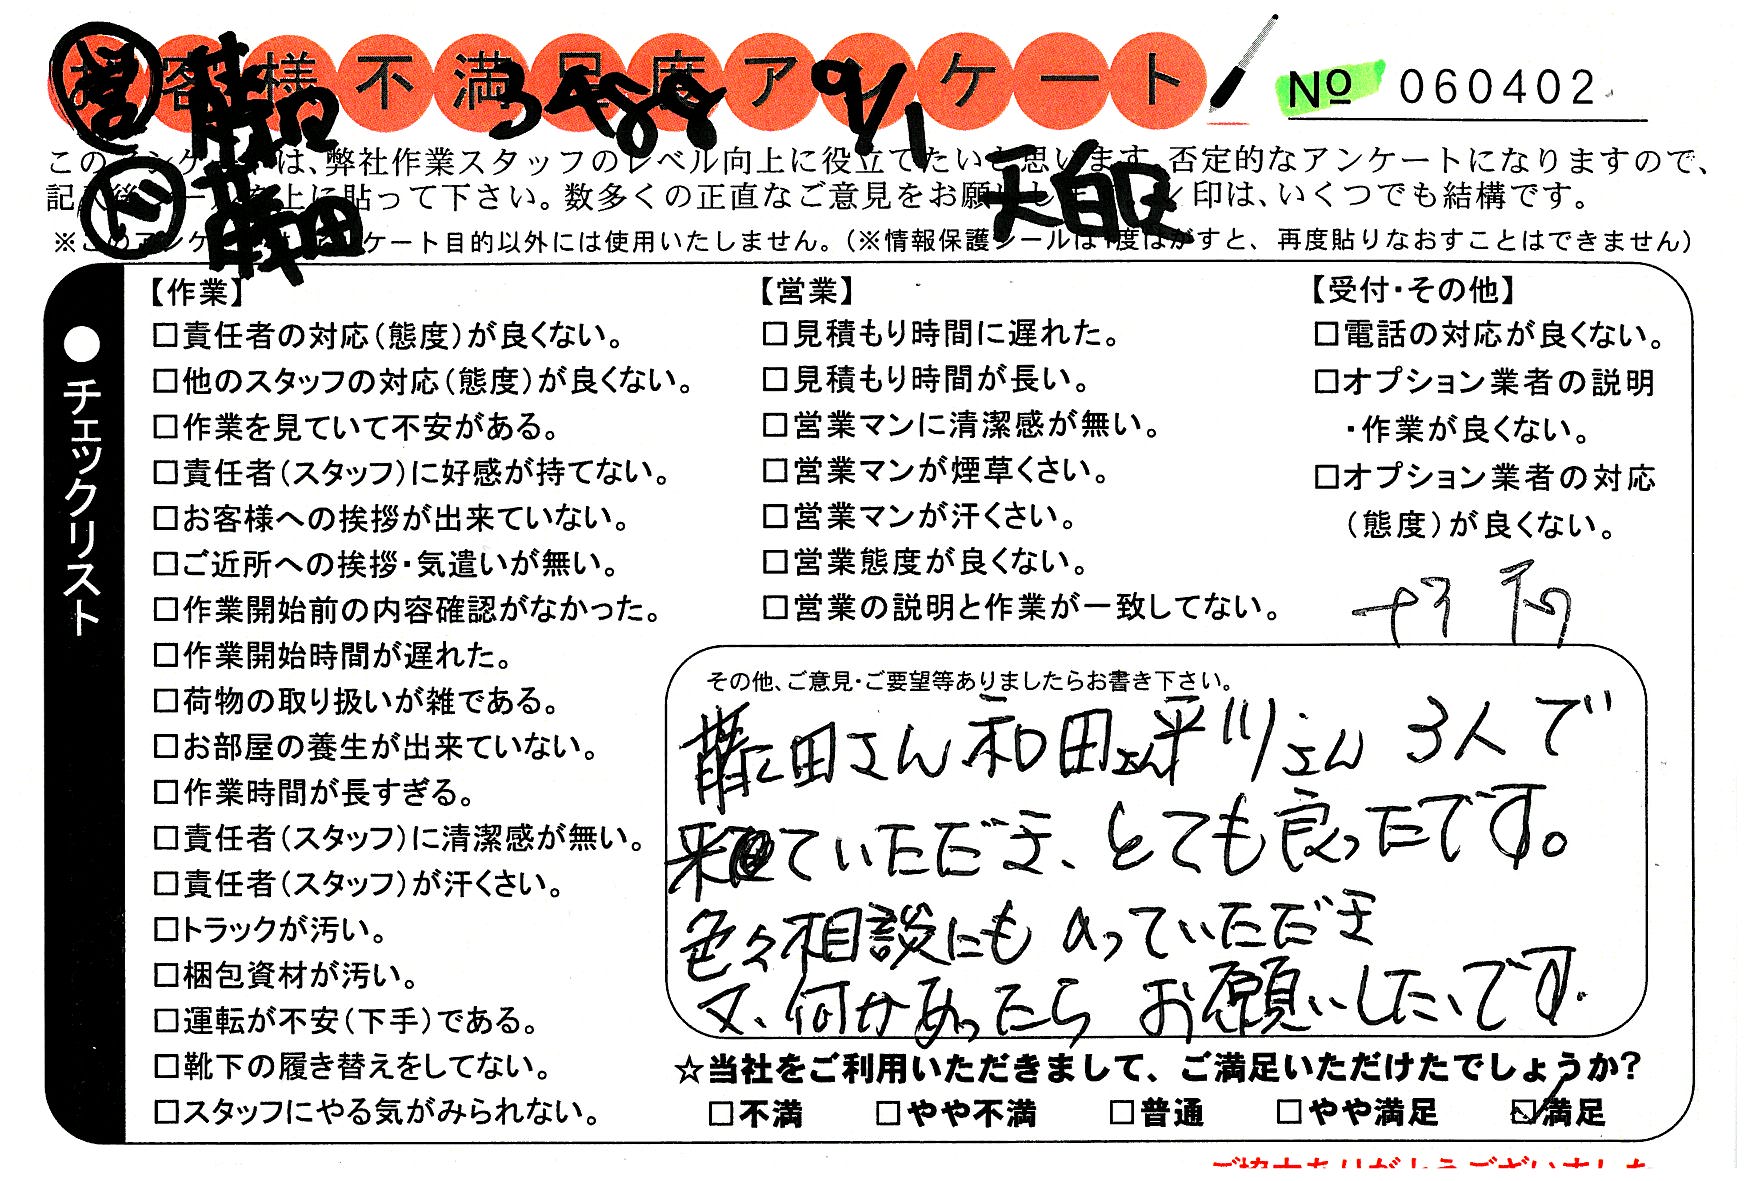 お客様不満足度アンケート
№ 060402
営
3488 9/1
天白区
ド 藤田
このアンケートは、弊社作業スタッフのレベル向上に役立てたいと思います。否定的なアンケートになりますので、
記入後シールを上に貼って下さい。数多くの正直なご意見をお願いします。レ印は、いくつでも結構です。
※このアンケートは、アンケート目的以外には使用いたしません。(※情報保護シールは1度はがすと、再度貼りなおすことはできません)
●チェックリスト
【作業】
□責任者の対応(態度)が良くない。
□他のスタッフの対応(態度)が良くない。
□作業を見ていて不安がある。
□責任者(スタッフ)に好感が持てない。
□お客様への挨拶が出来ていない。
□ご近所への挨拶・気遣いが無い。
□作業開始前の内容確認がなかった。
□作業開始時間が遅れた。
□荷物の取り扱いが雑である。
□お部屋の養生が出来ていない。
□作業時間が長すぎる。
□責任者(スタッフ)に清潔感が無い。
□責任者(スタッフ)が汗くさい。
□トラックが汚い。
□梱包資材が汚い。
□運転が不安(下手)である。
□靴下の履き替えをしてない。
□スタッフにやる気がみられない。
【営業】
□見積もり時間に遅れた。
□見積もり時間が長い。
□営業マンに清潔感が無い。
□営業マンが煙草くさい。
□営業マンが汗くさい。
□営業態度が良くない。
□営業の説明と作業が一致してない。
【受付・その他】
□電話の対応が良くない。
□オプション業者の説明
・作業が良くない。
□オプション業者の対応
(態度)が良くない。
その他、ご意見・ご要望等ありましたらお書き下さい。
藤田さん 和田さん 平川さん 3人で
来ていただき、とても良ったです。
色々相談にものっていただき
又、何かあったら お願いしたいです。
☆当社をご利用いただきまして、ご満足いただけたでしょうか?
□不満 □やや不満 □普通 □やや満足 ☑満足
ご協力ありがとうございました